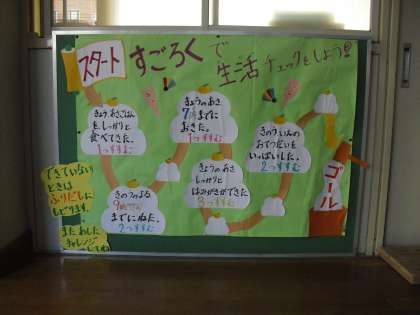 スタート
すごろくで
生活チェックをしよう!!
きょう、あさごはん
を、しっかりと
食べてきた。
1っすすむ
きのうのよる
9時
までにねた。
2っすすむ
きょうのあさ
7時までに
おきた。
1っすすむ
きょうのあさ
しっかりと
はみがきができた
3っすすむ
きのう、いえの
おてつだいを
いっぱいした。
2っすすむ
ゴール
できていない
ときは
ふりだしに
もどります。
またあした
チャレンジ
してね